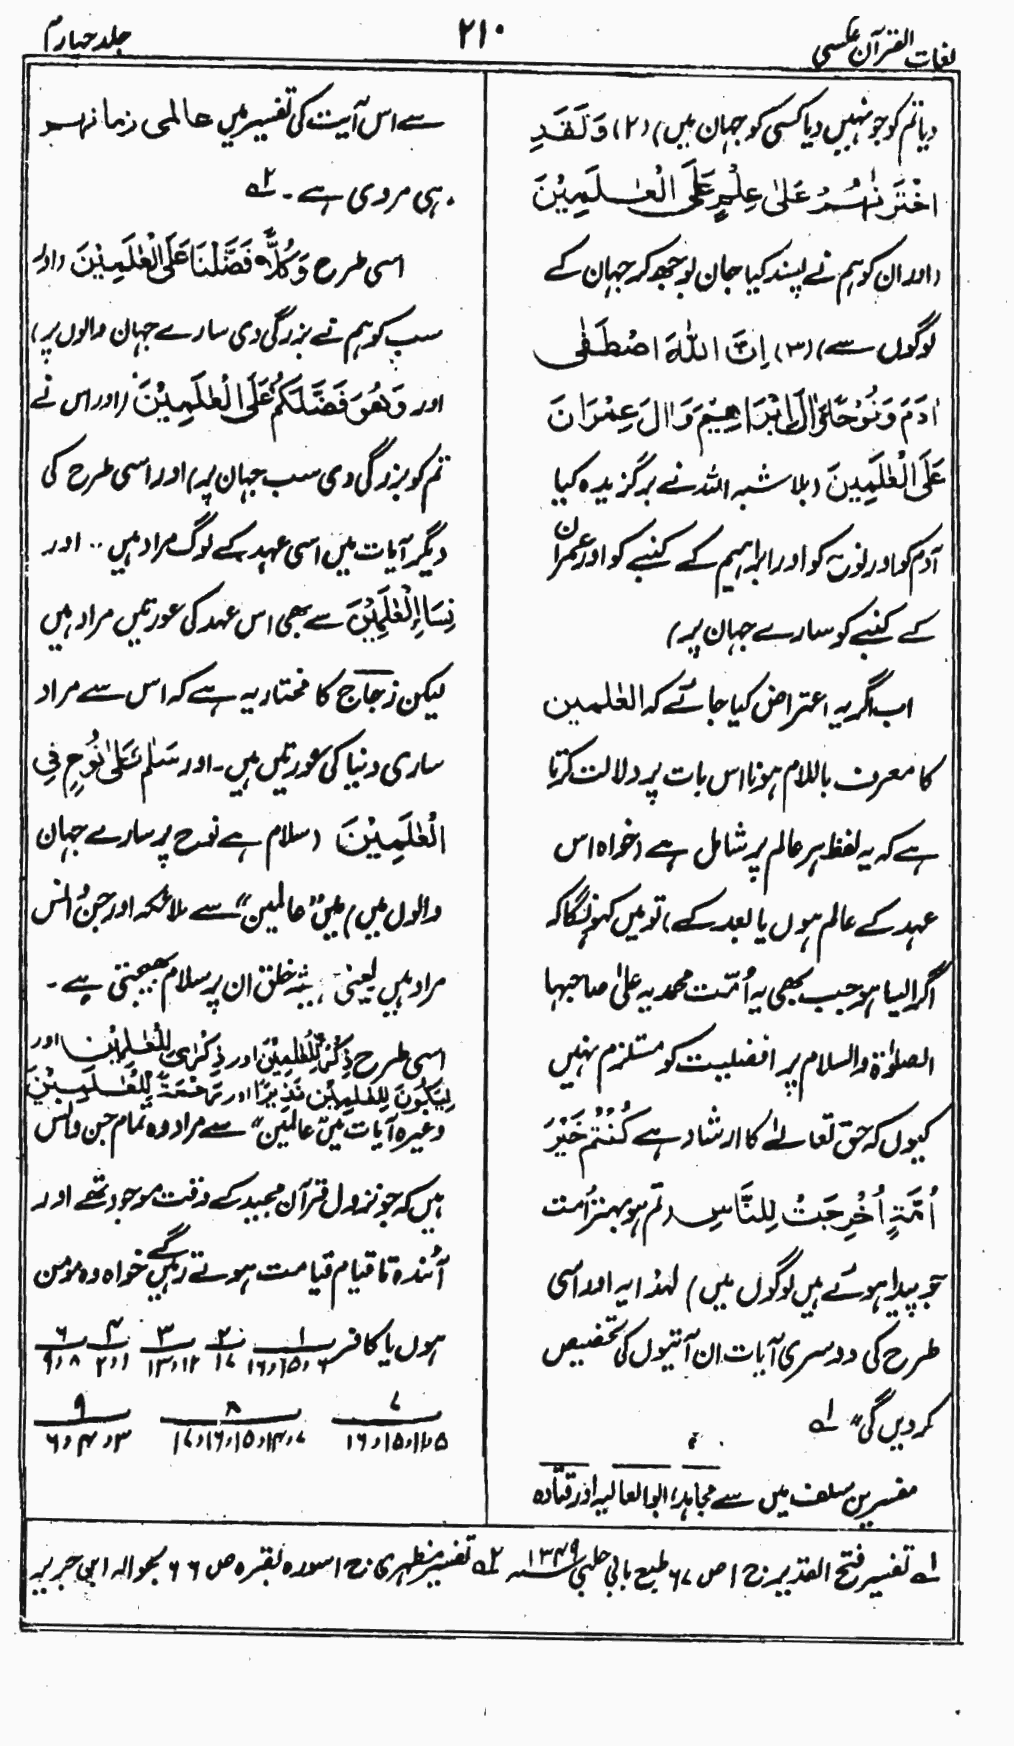 لغات القرآن عکسی
۲۱۰
جلد چہارم
دیا تم کو جو نہیں دیا کسی کو جہان میں) (۲) وَلَقَدِ
اخْتَرْنٰهُمْ عَلٰی عِلْمٍ عَلَی الْعٰلَمِيْنَ
(اور ان کو ہم نے پسند کیا جان بوجھ کر جہان کے
لوگوں سے) (۳) اِنَّ اللّٰهَ اصْطَفٰی
اٰدَمَ وَنُوْحًا وَّاٰلَ اِبْرَاهِيْمَ وَاٰلَ عِمْرَانَ
عَلَی الْعٰلَمِيْنَ (بلا شبہ اللہ نے برگزیدہ کیا
آدم کو اور نوح کو اور ابراہیم کے کنبے کو اور عمران
کے کنبے کو سارے جہان پر)
اب اگر یہ اعتراض کیا جائے کہ العٰلمین
کا معرف باللام ہونا اس بات پر دلالت کرتا
ہے کہ یہ لفظ ہر عالم پر شامل ہے (خواہ اس
عہد کے عالم ہوں یا بعد کے) تو میں کہونگا کہ
اگر ایسا ہو جب بھی یہ اُمّت محمدیہ علیٰ صاحبہا
الصلوٰۃ والسلام پر افضلیت کو مستلزم نہیں
کیوں کہ حق تعالےٰ کا ارشاد ہے كُنْتُمْ خَيْرَ
اُمَّةٍ اُخْرِجَتْ لِلنَّاسِ (تم ہو بہتر اُمت
جو پیدا ہوئے ہیں لوگوں میں) لہٰذا یہ اور اسی
طرح کی دوسری آیات ان آیتوں کی تخصیص
کر دیں گی" ۱؎
مفسرین سلف میں سے مجاہد، ابوالعالیہ اور قتادہ
سے اس آیت کی تفسیر میں عالمی زمانہم
ہی مروی ہے۔ ۲؎
اسی طرح وَكُلًّا فَضَّلْنَا عَلَی الْعٰلَمِيْنَ (اور
سب کو ہم نے بزرگی دی سارے جہان والوں پر)
اور وَهُوَ فَضَّلَكُمْ عَلَی الْعٰلَمِيْنَ (اور اس نے
تم کو بزرگی دی سب جہان پر) اور اسی طرح کی
دیگر آیات میں اسی عہد کے لوگ مراد ہیں .. اور
نِسَاءِ الْعٰلَمِيْنَ سے بھی اس عہد کی عورتیں مراد ہیں
لیکن زجاج کا مختار یہ ہے کہ اس سے مراد
ساری دنیا کی عورتیں ہیں۔ اور سَلٰمٌ عَلٰی نُوْحٍ فِی
الْعٰلَمِيْنَ (سلام ہے نوح پر سارے جہان
والوں میں) میں "عالمین" سے ملائکہ اور جنّ وانس
مراد ہیں یعنی یہ خلق ان پر سلام بھیجتی ہے۔
اسی طرح ذِكْرٌ لِّلْعٰلَمِيْنَ اور ذِكْرٰی لِلْعٰلَمِيْنَ اور
لِيَكُوْنَ لِلْعٰلَمِيْنَ نَذِيْرًا اور رَحْمَةً لِّلْعٰلَمِيْنَ
وغیرہ آیات میں "عالمین" سے مراد وہ تمام جن وانس
ہیں کہ جو نزول قرآن مجید کے وقت موجود تھے اور
آئندہ تا قیام قیامت ہوتے رہیں گے خواہ وہ مومن
ہوں یا کافر ۱ ۲ ۳ ۴ ۶
۶،۱۵،۱۶ ۱۷ ۱۲،۱۳ ۱،۲ ۸،۹
۷ ۸ ۹
۵،۱۲،۱۵،۱۶ ۷،۱۴،۱۵،۱۶،۱۷ ۳،۴،۶
۱؎ تفسیر فتح القدیر ج ۱ ص ۶۷ طبع بابی حلبی ۱۳۴۹ سنہ ۲؎ تفسیر مظہری ج ۱ سورہ بقرہ ص ۶۶ بحوالہ ابن جریر